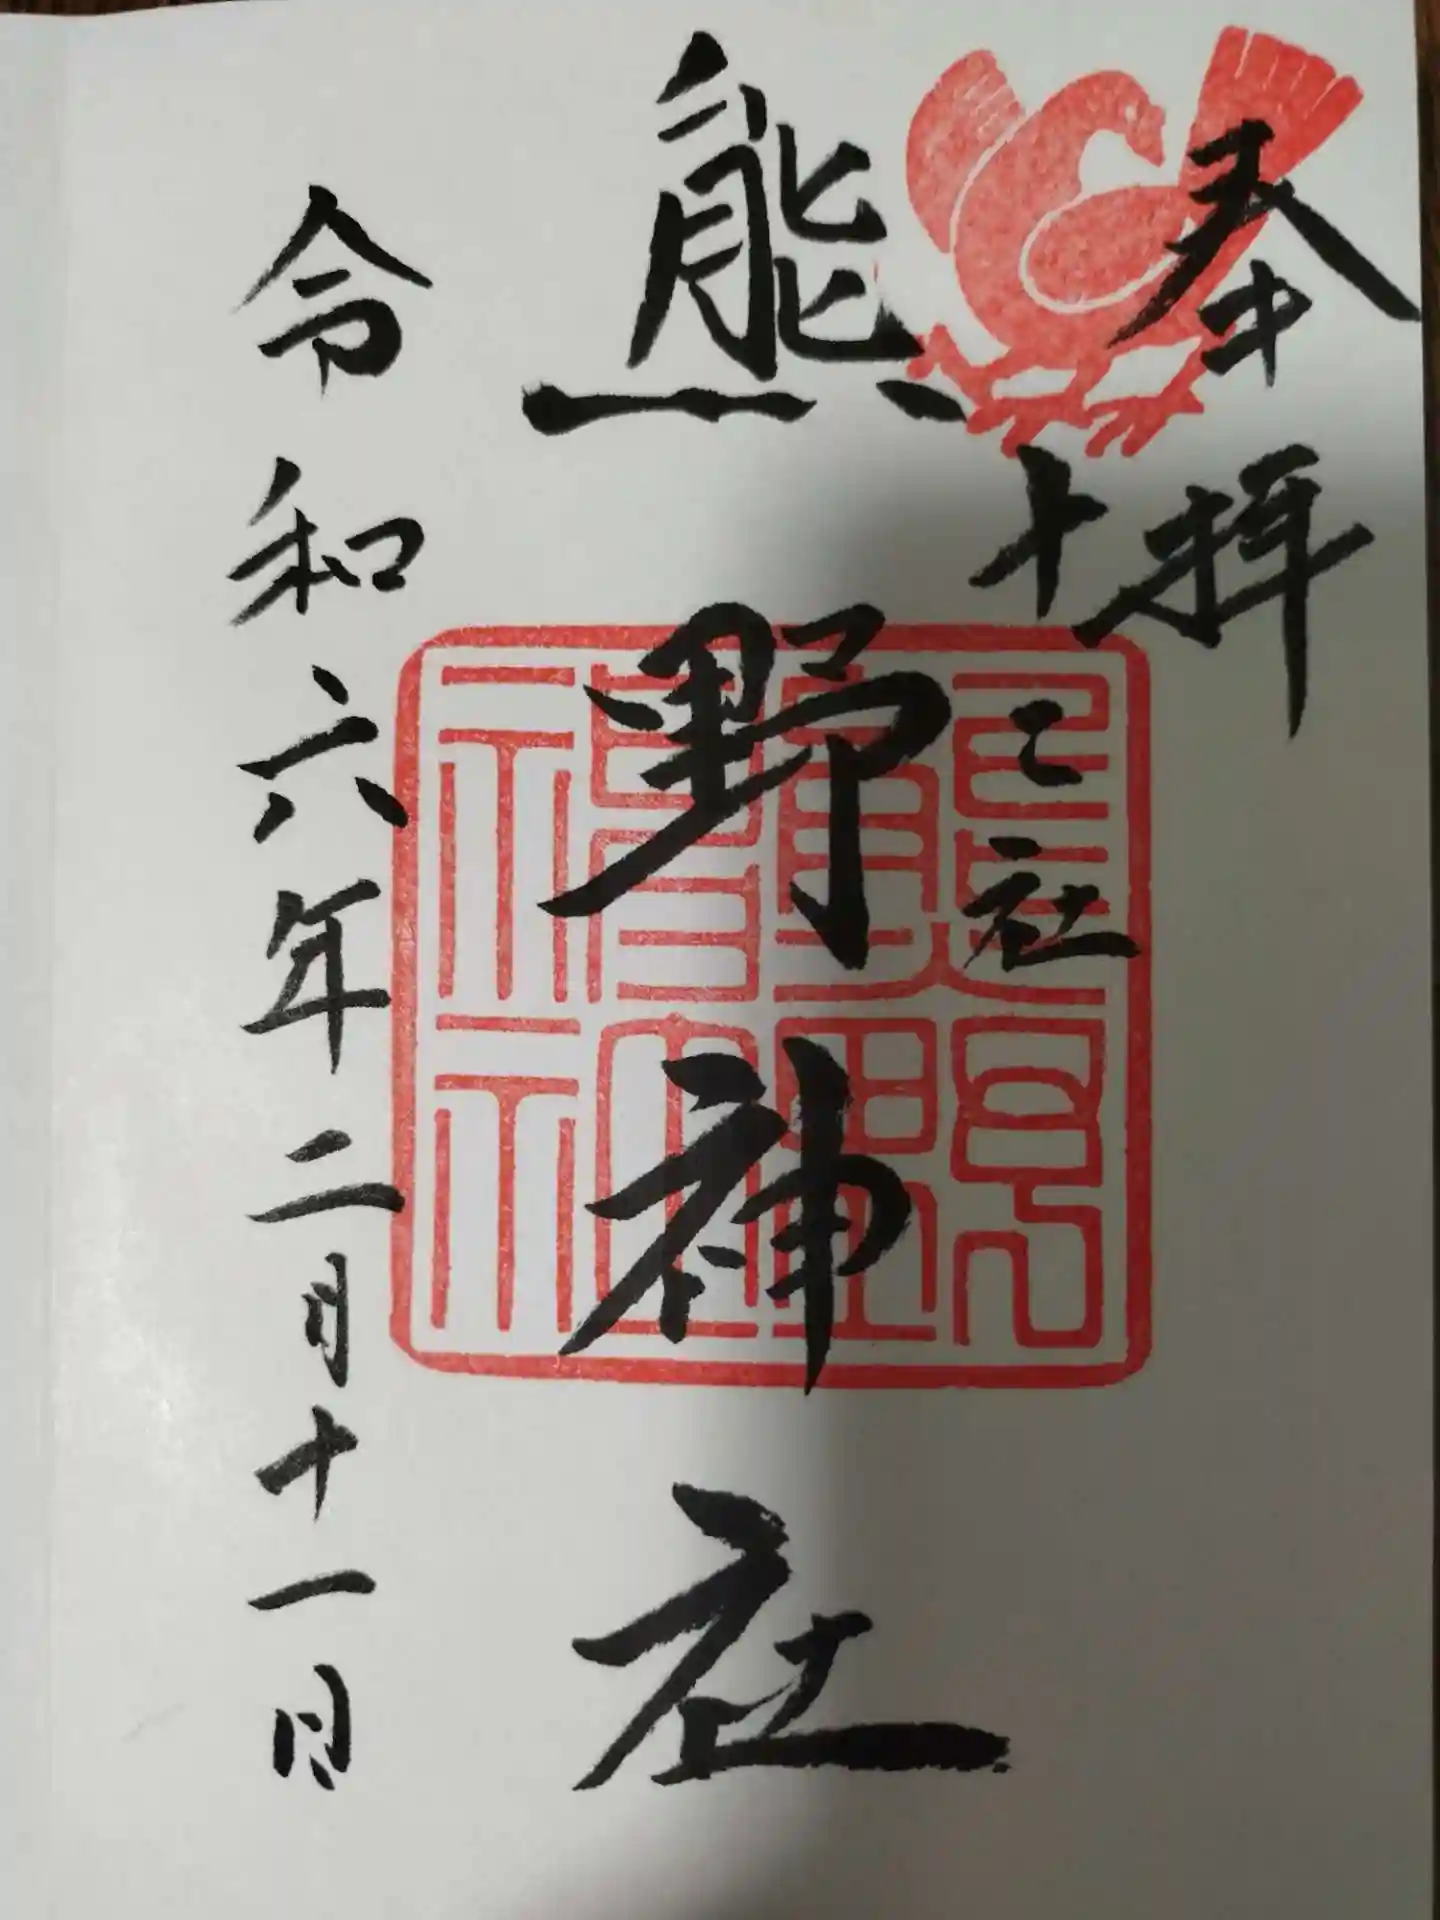 奉拝
十二社
熊野神社
令和六年二月十一日
熊野
神社